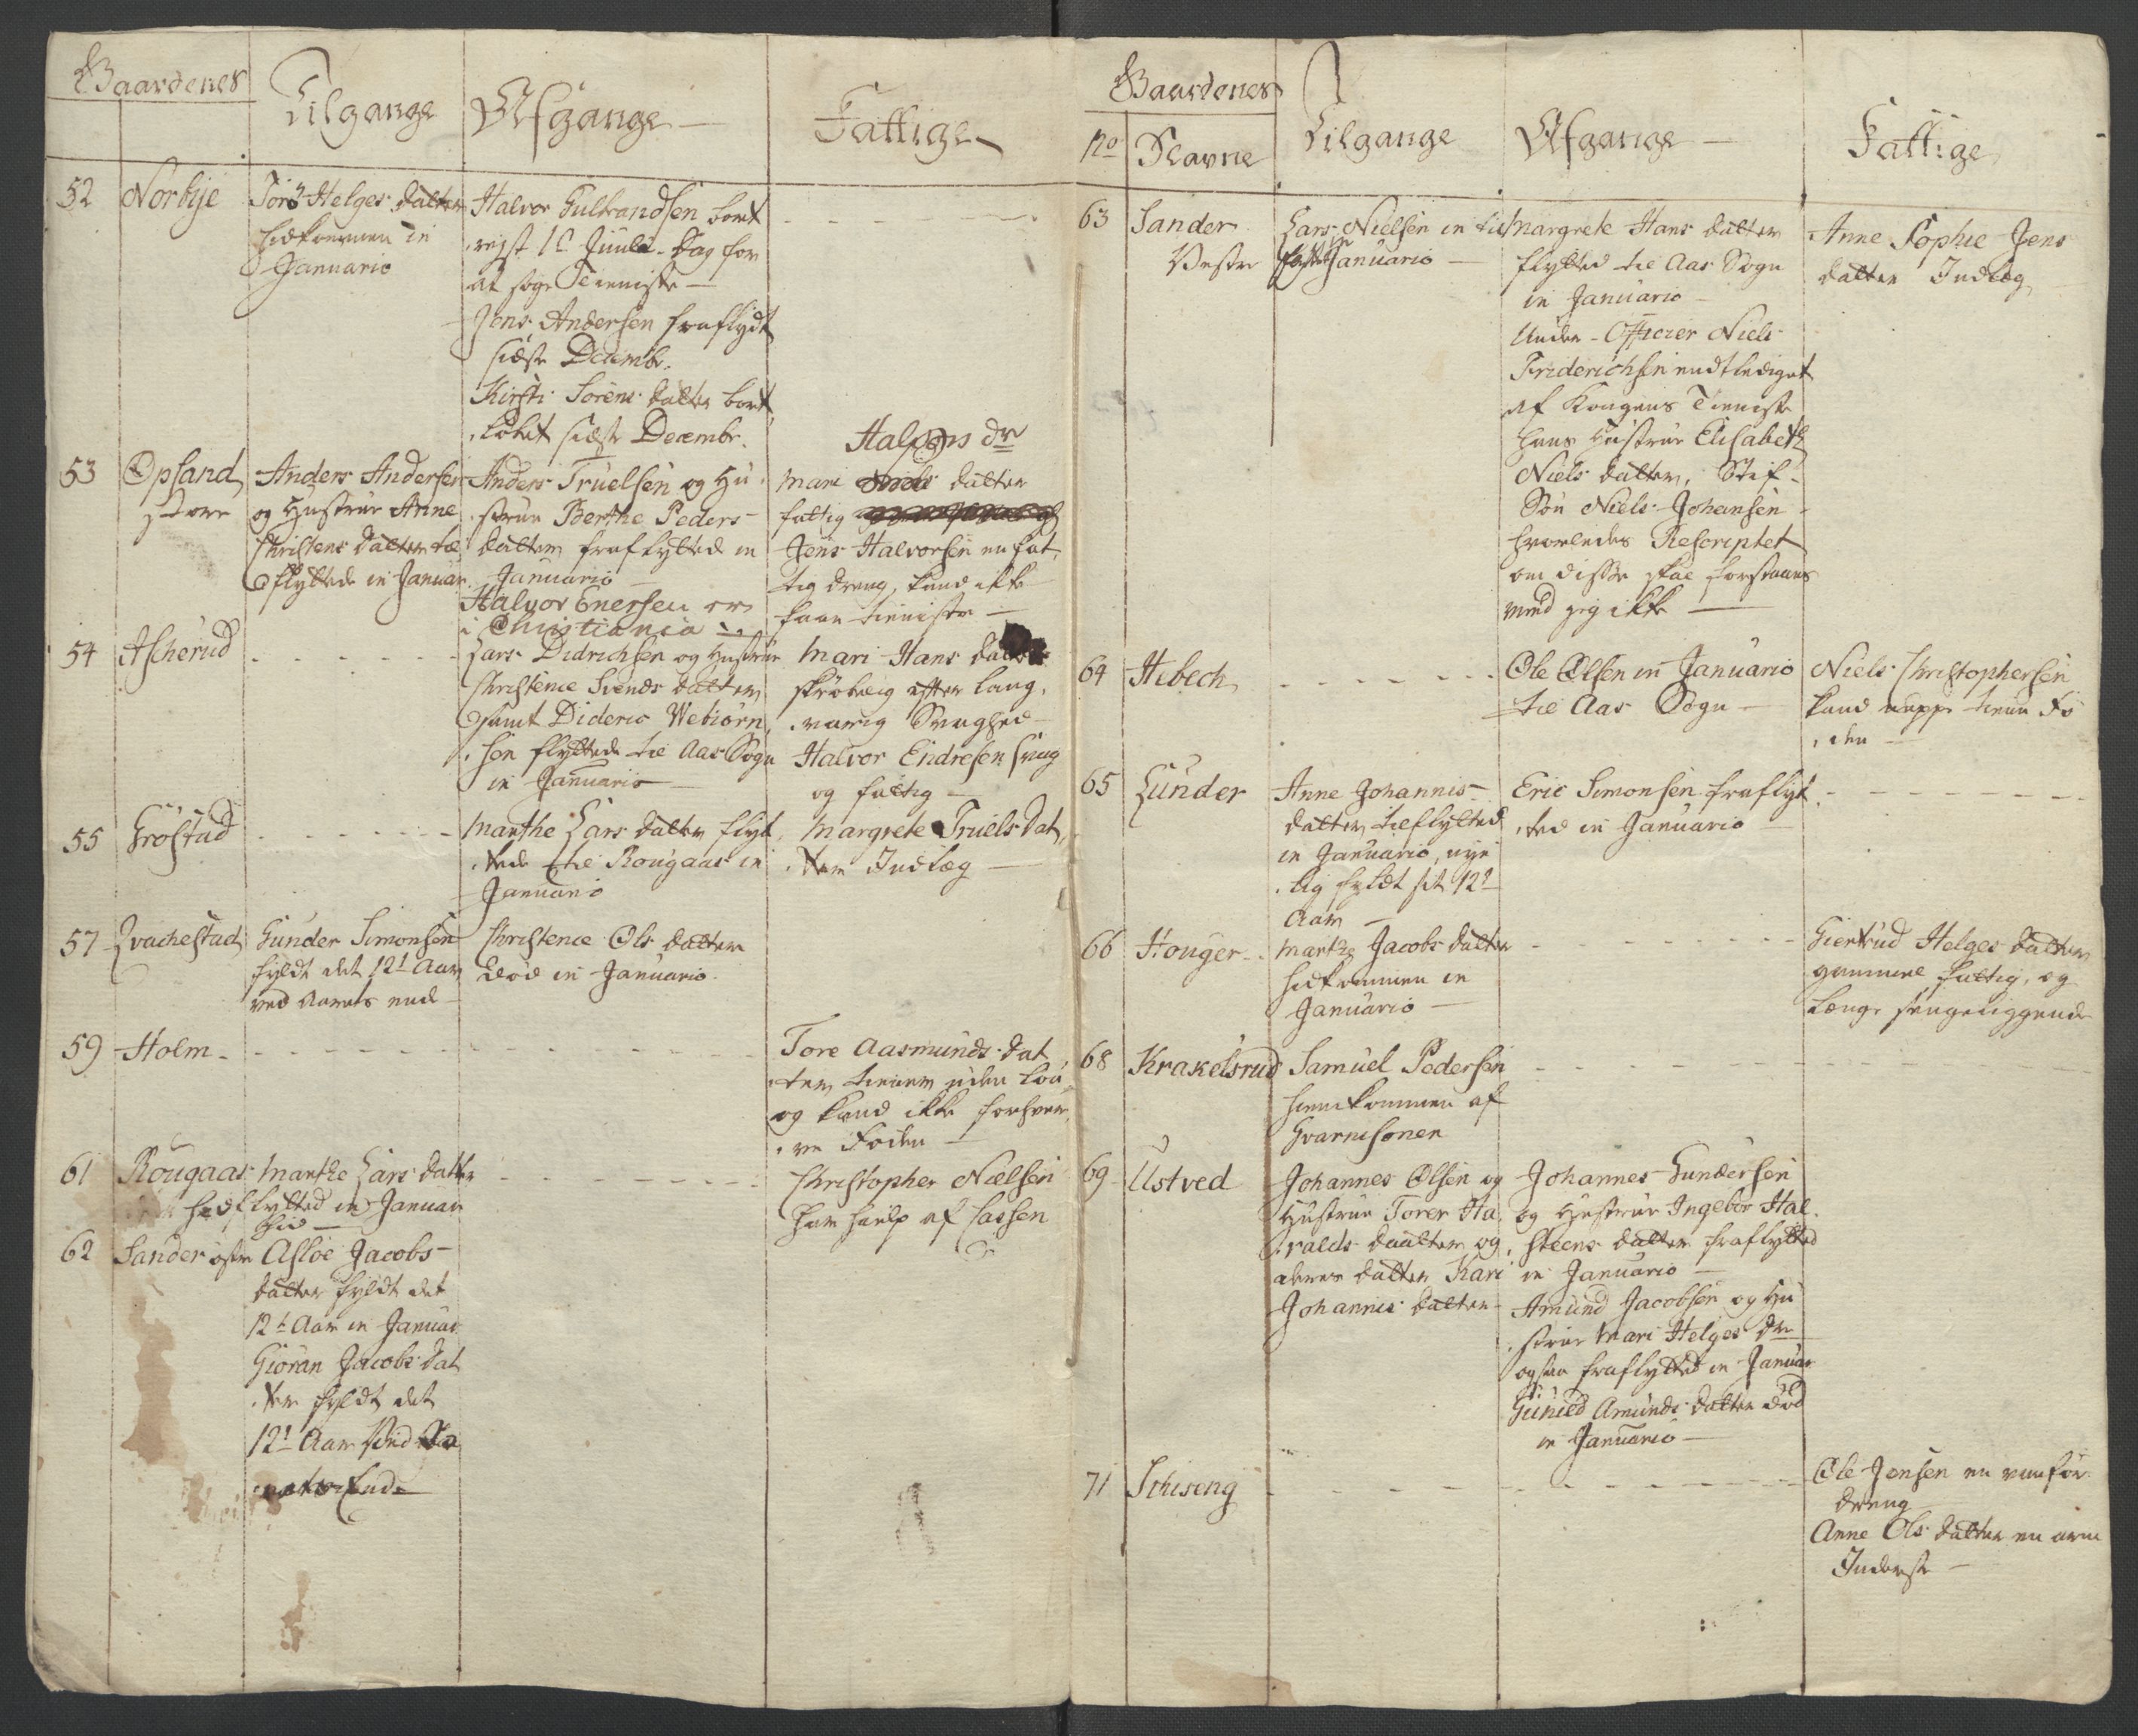 Gaardenes
Tilgange
Afgange
Fattige
52 Norbye
Törs Helges datter
hidkommen in
Januario
Halvor Gulbrandsen bort
rejst 1te Juule-Dag for
at søge Tieniste
Jens Andersen fraflydt
sidste Decembr.
Kirsti Sørens datter bort
løbet sidste Decembr.
53 Opsand
store
Anders Andersen
og Hustrue Anne
Christens datter til
flyttede in Januar
Anders Truelsen og Hu
strue Berthe Peders
datter fraflytted in
Januario
Halvor Enersen er
i Christiania
Halvors dr
Mari datter
fattig
Jens Halvorsen en fat
tig dreng, kand ikke
faae tieniste
54 Ascherud
Lars Didrichsen og Hustrue
Christence Svends datter
samt Dideric Webiørn
sen flyttede til Aas Sogn
in Januario
Mari Hans datter
skrøbelig efter lang
varig Svaghed
Halvor Endresen svag
og fattig
55 Gröstad
Marthe Lars datter flyt
tede til Rougaas in
Januario
Margrete Truels dat
ter Indlæg
57 Qvachestad
Gunder Simonsen
fyldt det 12te Aar
ved Aarets ende
Christence Ols datter
død in Januario
59 Holm
Tore Aasmunds dat
ter tiener uden løn
og kand ikke forhver
ve Føden
61 Rougaas
Marthe Lars datter
hidflytted in Januar
hid
Christopher Nielsen
har hielp af Cassen
62 Sander østre
Asloe Jacobs
datter fyldt det
12te Aar in Januar
Giøran Jacobs dat
ter fyldt det
12te Aar ved Aa
rets Ende
Gaardenes
No Navne
Tilgange
Afgange
Fattige
63 Sander
Vestre
Lars Nielsen in
Januario
Margrete Hans datter
flytted til Aas Sogn
in Januario
Under-Officier Niels
Friderichsen endtlediget
af Kongens Tieniste
hans Hustrue Elisabeth
Niels datter, Stif-
Søn Niels Johansen
hvorledes Rescriptet
om disse skal forstaaes
veed jeg ikke
Anne Sophie Jens
datter Indlæg
64 Hebech
Ole Olsen in Januario
til Aas Sogn
Niels Christophersen
kand neppe tiene Fø
den
65 Lunder
Anne Johannis
datter tilflytted
in Januario, nye
lig fyldt sit 12te
Aar
Eric Simonsen fraflyt
ted in Januario
66 Houger
Marthe Jacobs datter
hidkommen in
Januario
Giertrud Helges datter
gammel fattig, og
længe sengeliggende
68 Krakelsrud
Samuel Pedersen
hiemkommen af
Gvarnisonen
69 Ustved
Johannes Olsen og
Hustrue Torer Ha
ralds daatter og
deres datter Kari
Johannis datter
Johannes Gundersen
og Hustrue Ingebor Hal
steens datter fraflytted
in Januario
Amund Jacobsen og Hu
strue Mari Helges dr
ogsaa fraflytted in Januar
Gunild Amunds datter død
in Januario
71 Schiseng
Ole Jensen en vanfør
dreng
Anne Ols datter en arm
Inderste